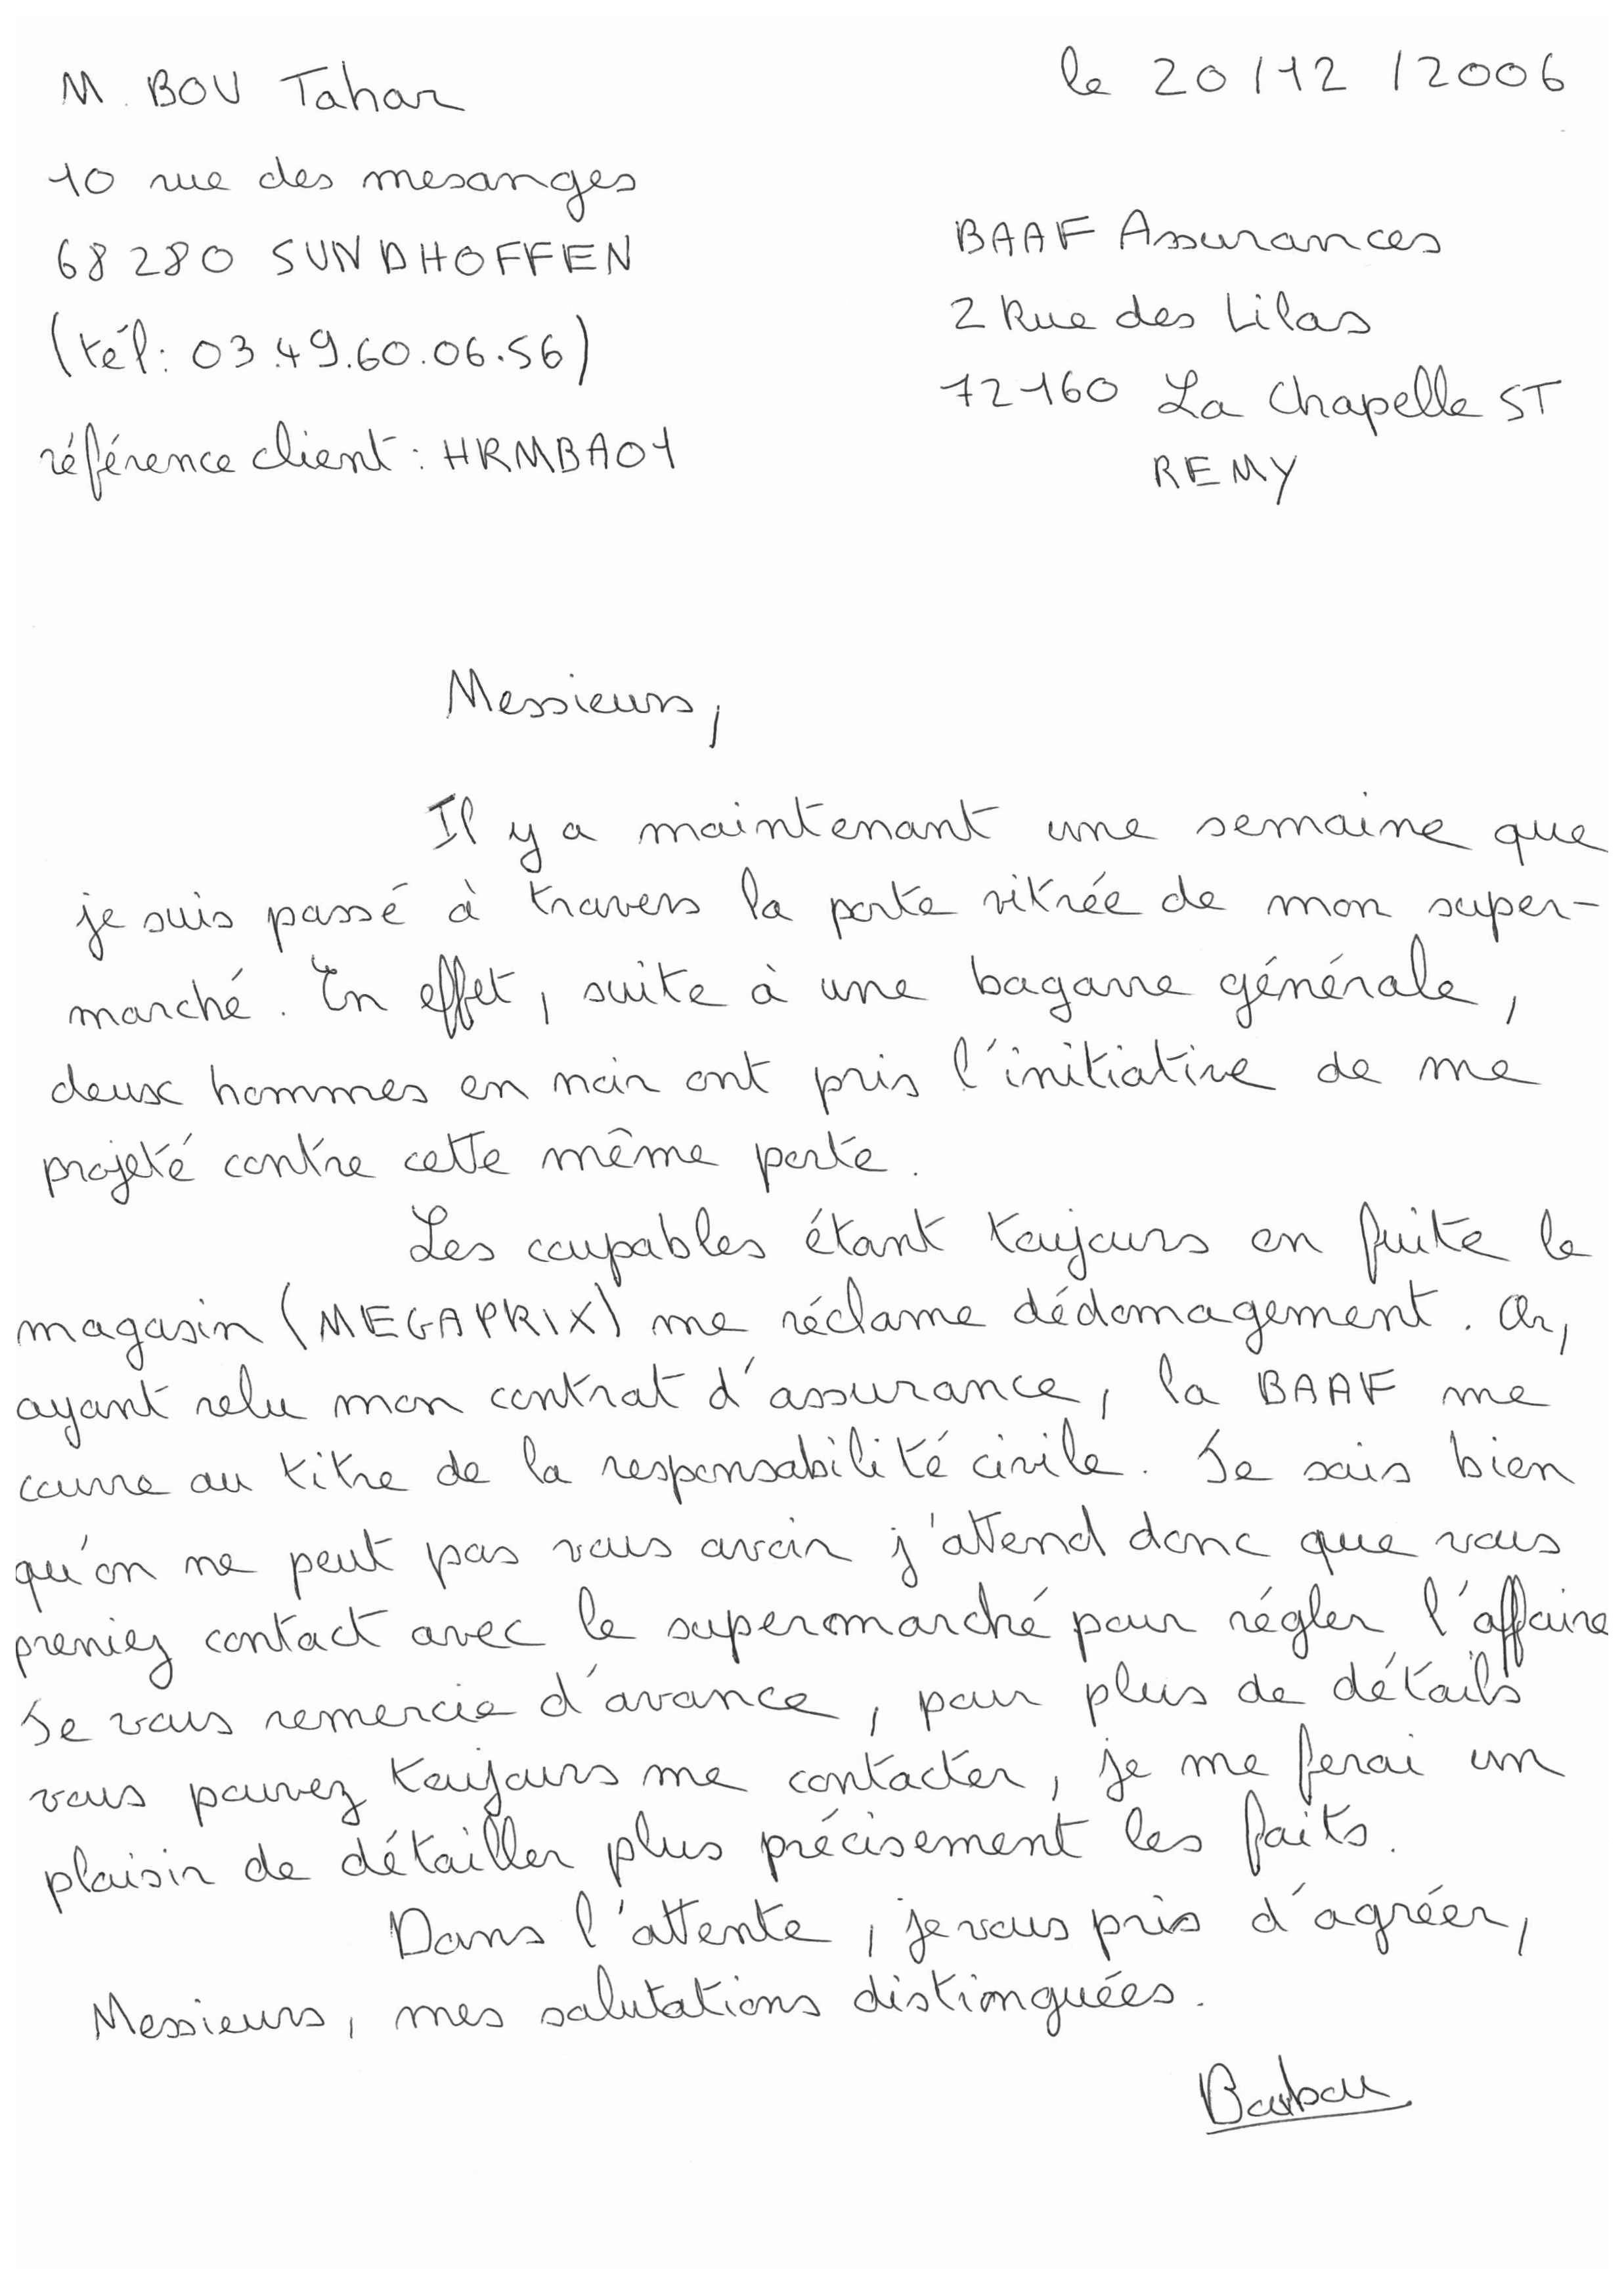 M. BOU Tahar
le 20/12/2006
10 rue des mesanges
68280 SUNDHOFFEN
(tél: 03.49.60.06.56)
référence client : HRMBA01
BAAF Assurances
2 Rue des Lilas
72160 La Chapelle ST
REMY
Messieurs,
Il y a maintenant une semaine que
je suis passé à travers la porte vitrée de mon super-
marché. En effet, suite à une bagarre générale,
deux hommes en noir ont pris l'initiative de me
projeté contre cette même porte.
Les coupables étant toujours en fuite le
magasin (MEGAPRIX) me réclame dédomagement. Or,
ayant relu mon contrat d'assurance, la BAAF me
couvre au titre de la responsabilité civile. Je sais bien
qu'on ne peut pas vous avoir j'attend donc que vous
preniez contact avec le supermarché pour régler l'affaire
Je vous remercie d'avance, pour plus de détails
vous pouvez toujours me contacter, je me ferai un
plaisir de détailler plus précisement les faits.
Dans l'attente, je vous pris d'agréer,
Messieurs, mes salutations distinguées.